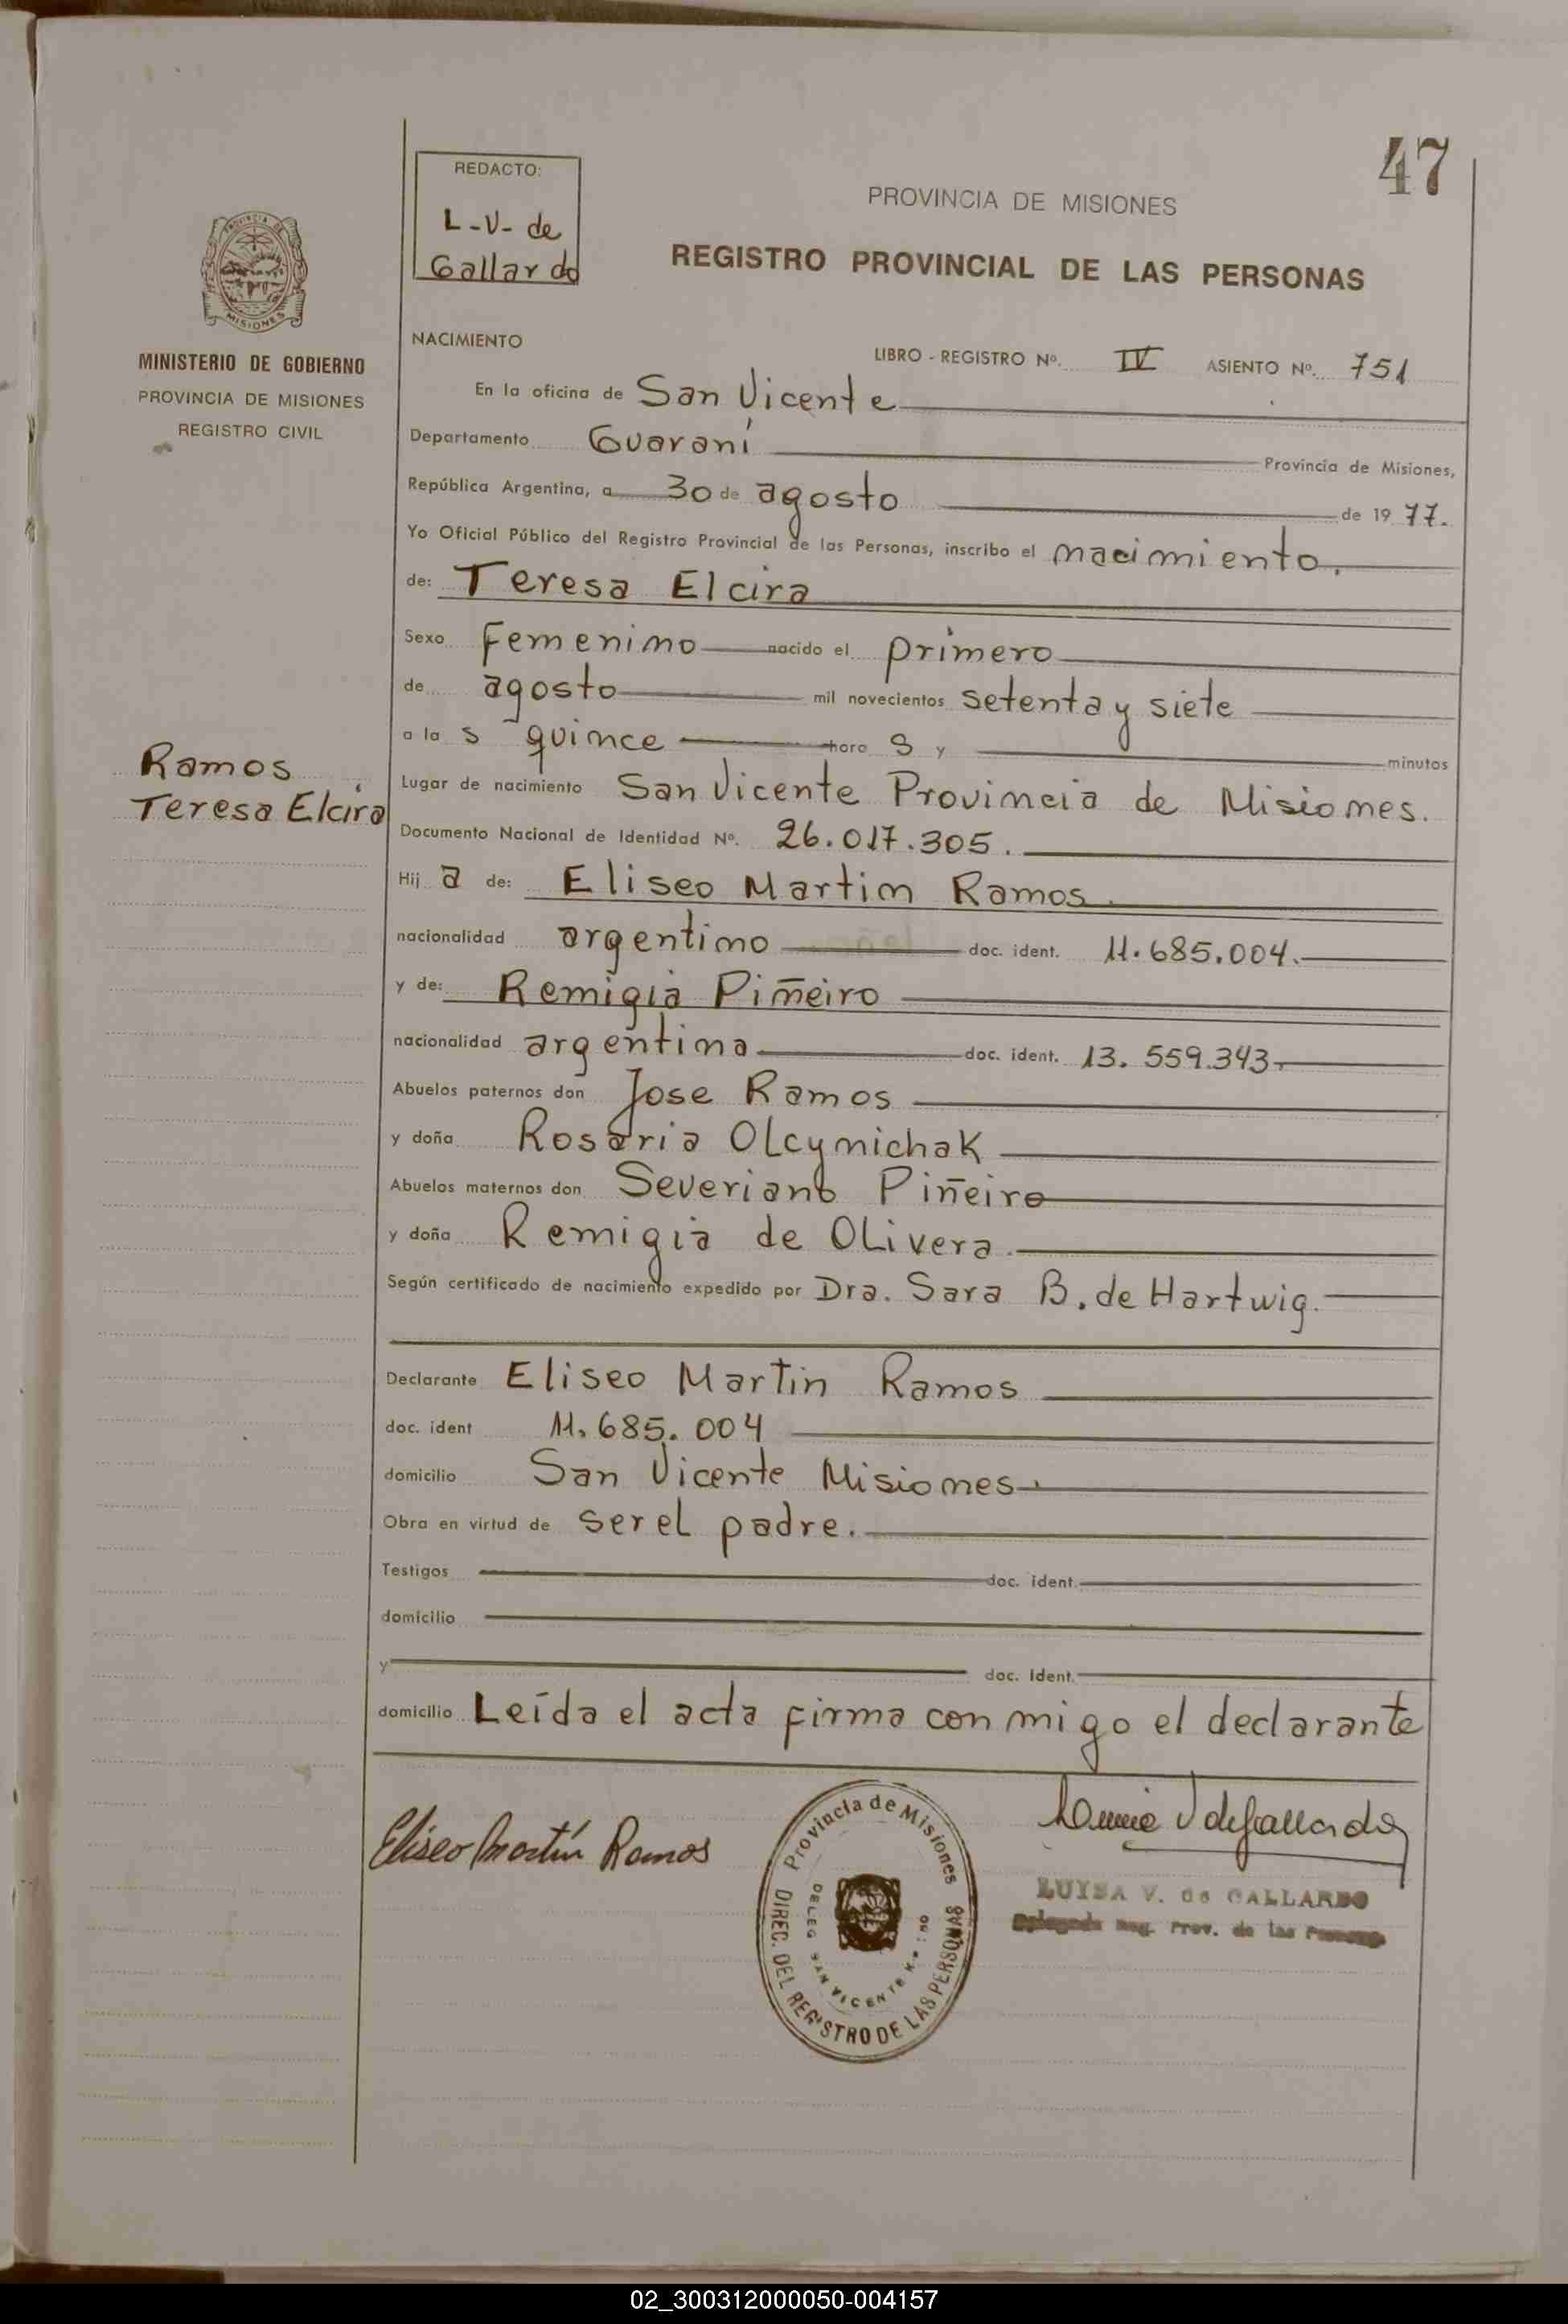 47
REDACTO:
L-V- de
Gallardo
PROVINCIA DE MISIONES
REGISTRO PROVINCIAL DE LAS PERSONAS
PROVINCIA DE
MISIONES
MINISTERIO DE GOBIERNO
PROVINCIA DE MISIONES
REGISTRO CIVIL
NACIMIENTO
LIBRO - REGISTRO Nº. IV ASIENTO Nº. 751
En la oficina de San Vicente
Departamento Guaraní Provincia de Misiones,
República Argentina, a 30 de agosto de 19 77.
Yo Oficial Público del Registro Provincial de las Personas, inscribo el nacimiento.
de: Teresa Elcira
Sexo Femenino nacido el primero
de agosto mil novecientos setenta y siete
a la s quince hora s y minutos
Ramos
Teresa Elcira
Lugar de nacimiento San Vicente Provincia de Misiones.
Documento Nacional de Identidad Nº. 26.017.305.
Hij a de: Eliseo Martin Ramos
nacionalidad argentino doc. ident. 11.685.004.
y de: Remigia Piñeiro
nacionalidad argentina doc. ident. 13.559.343.
Abuelos paternos don Jose Ramos
y doña Rosaria Olcynichak
Abuelos maternos don Severiano Piñeiro
y doña Remigia de Olivera.
Según certificado de nacimiento expedido por Dra. Sara B. de Hartwig.
Declarante Eliseo Martin Ramos
doc. ident 11.685.004
domicilio San Vicente Misiones.
Obra en virtud de ser el padre.
Testigos doc. ident.
domicilio
y doc. Ident.
domicilio Leída el acta firma conmigo el declarante
Eliseo Martín Ramos
Provincia de Misiones
DIREC. DEL REGISTRO DE LAS PERSONAS
DELEG SAN VICENTE
V de Gallardo
LUISA V. de GALLARDO
Delegada Reg. Prov. de las Personas
02_300312000050-004157